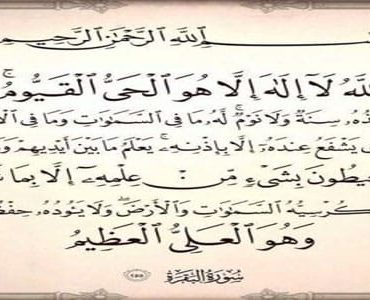 ـم اللَّهِ الرَّحْمَٰنِ الرَّحِيمِ
ـلَّهُ لَآ إِلَٰهَ إِلَّا هُوَ ٱلْحَىُّ ٱلْقَيُّومُ ۚ
ـذُهُۥ سِنَةٌ وَلَا نَوْمٌ ۚ لَّهُۥ مَا فِى ٱلسَّمَٰوَٰتِ وَمَا فِى ٱلْأ
ـى يَشْفَعُ عِندَهُۥٓ إِلَّا بِإِذْنِهِۦ ۚ يَعْلَمُ مَا بَيْنَ أَيْدِيهِمْ وَ
ـحِيطُونَ بِشَىْءٍ مِّنْ عِلْمِهِۦٓ إِلَّا بِمَا شَـ
كُرْسِيُّهُ ٱلسَّمَٰوَٰتِ وَٱلْأَرْضَ ۖ وَلَا يَـُٔودُهُۥ حِفْظُـ
وَهُوَ ٱلْعَلِىُّ ٱلْعَظِيمُ
سُورَةُ الْبَقَرَةِ ٢٥٥